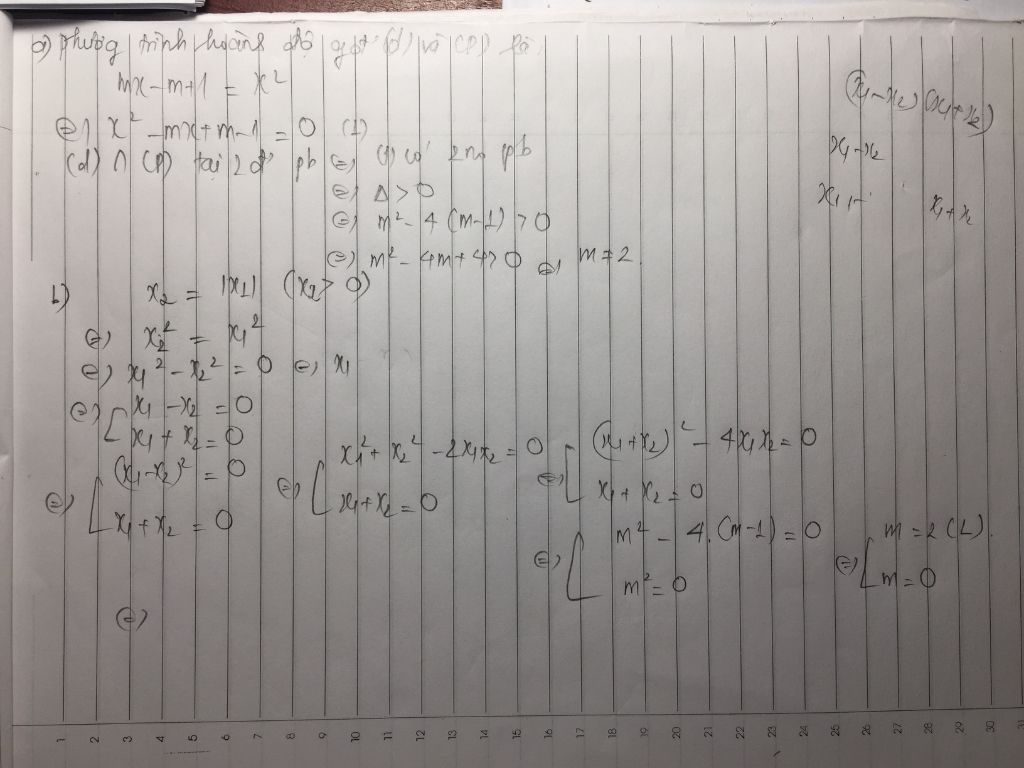 a) phương trình hoành độ gđ (d) và (P) là
mx - m + 1 = x²
⇔ x² - mx + m - 1 = 0 (1)
(d) ∩ (P) tại 2 đ' pb ⇔ (1) có 2 no pb
⇔ Δ > 0
⇔ m² - 4 (m-1) > 0
⇔ m² - 4m + 4 > 0 ⇔ m ≠ 2
(x₁ - x₂) (x₁ + x₂)
x₁ - x₂
x₁ + x₂
b) x₂ = |x₁| (x₂ > 0)
⇔ x₂² = x₁²
⇔ x₁² - x₂² = 0 ⇔ x₁
⇔ [ x₁ - x₂ = 0
x₁ + x₂ = 0
⇔ [ (x₁ - x₂)² = 0 ⇔ [ x₁² + x₂² - 2x₁x₂ = 0 ⇔ [ (x₁ + x₂)² - 4x₁x₂ = 0
x₁ + x₂ = 0 x₁ + x₂ = 0 x₁ + x₂ = 0
⇔ [ m² - 4.(m-1) = 0 ⇔ [ m = 2 (L).
m² = 0 m = 0
⇔
1 2 3 4 5 6 7 8 9 10 11 12 13 14 15 16 17 18 19 20 21 22 23 24 25 26 27 28 29 30 31